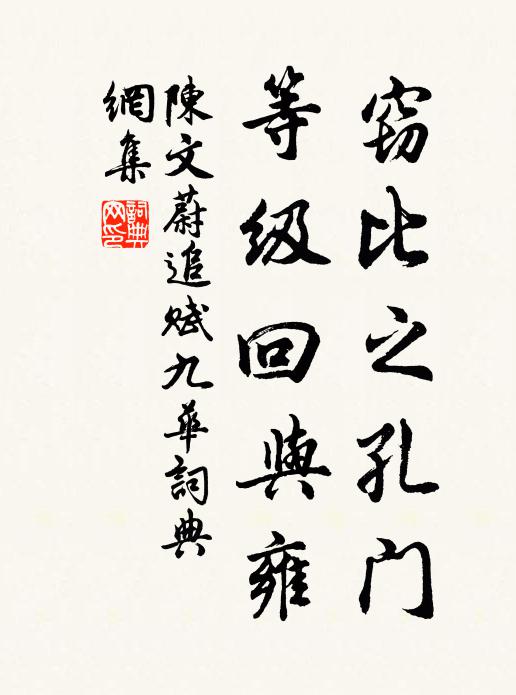 窃比之孔门
等级回與雍
陳文蔚追賦九華詞典
網集
詞典網印